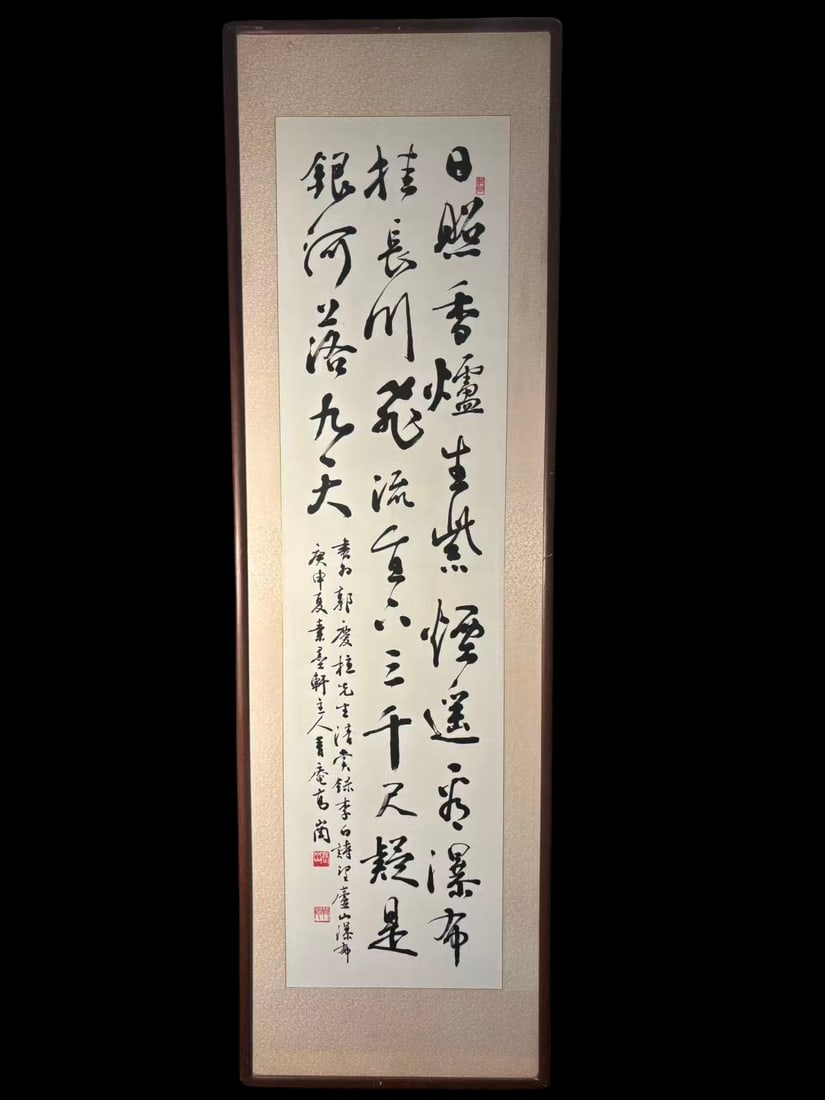 日照香爐生紫煙遙看瀑布
挂長川飛流直下三千尺疑是
銀河落九天
書為郭慶先生清賞錄李白詩望廬山瀑布
庚申夏墨軒主人庵高